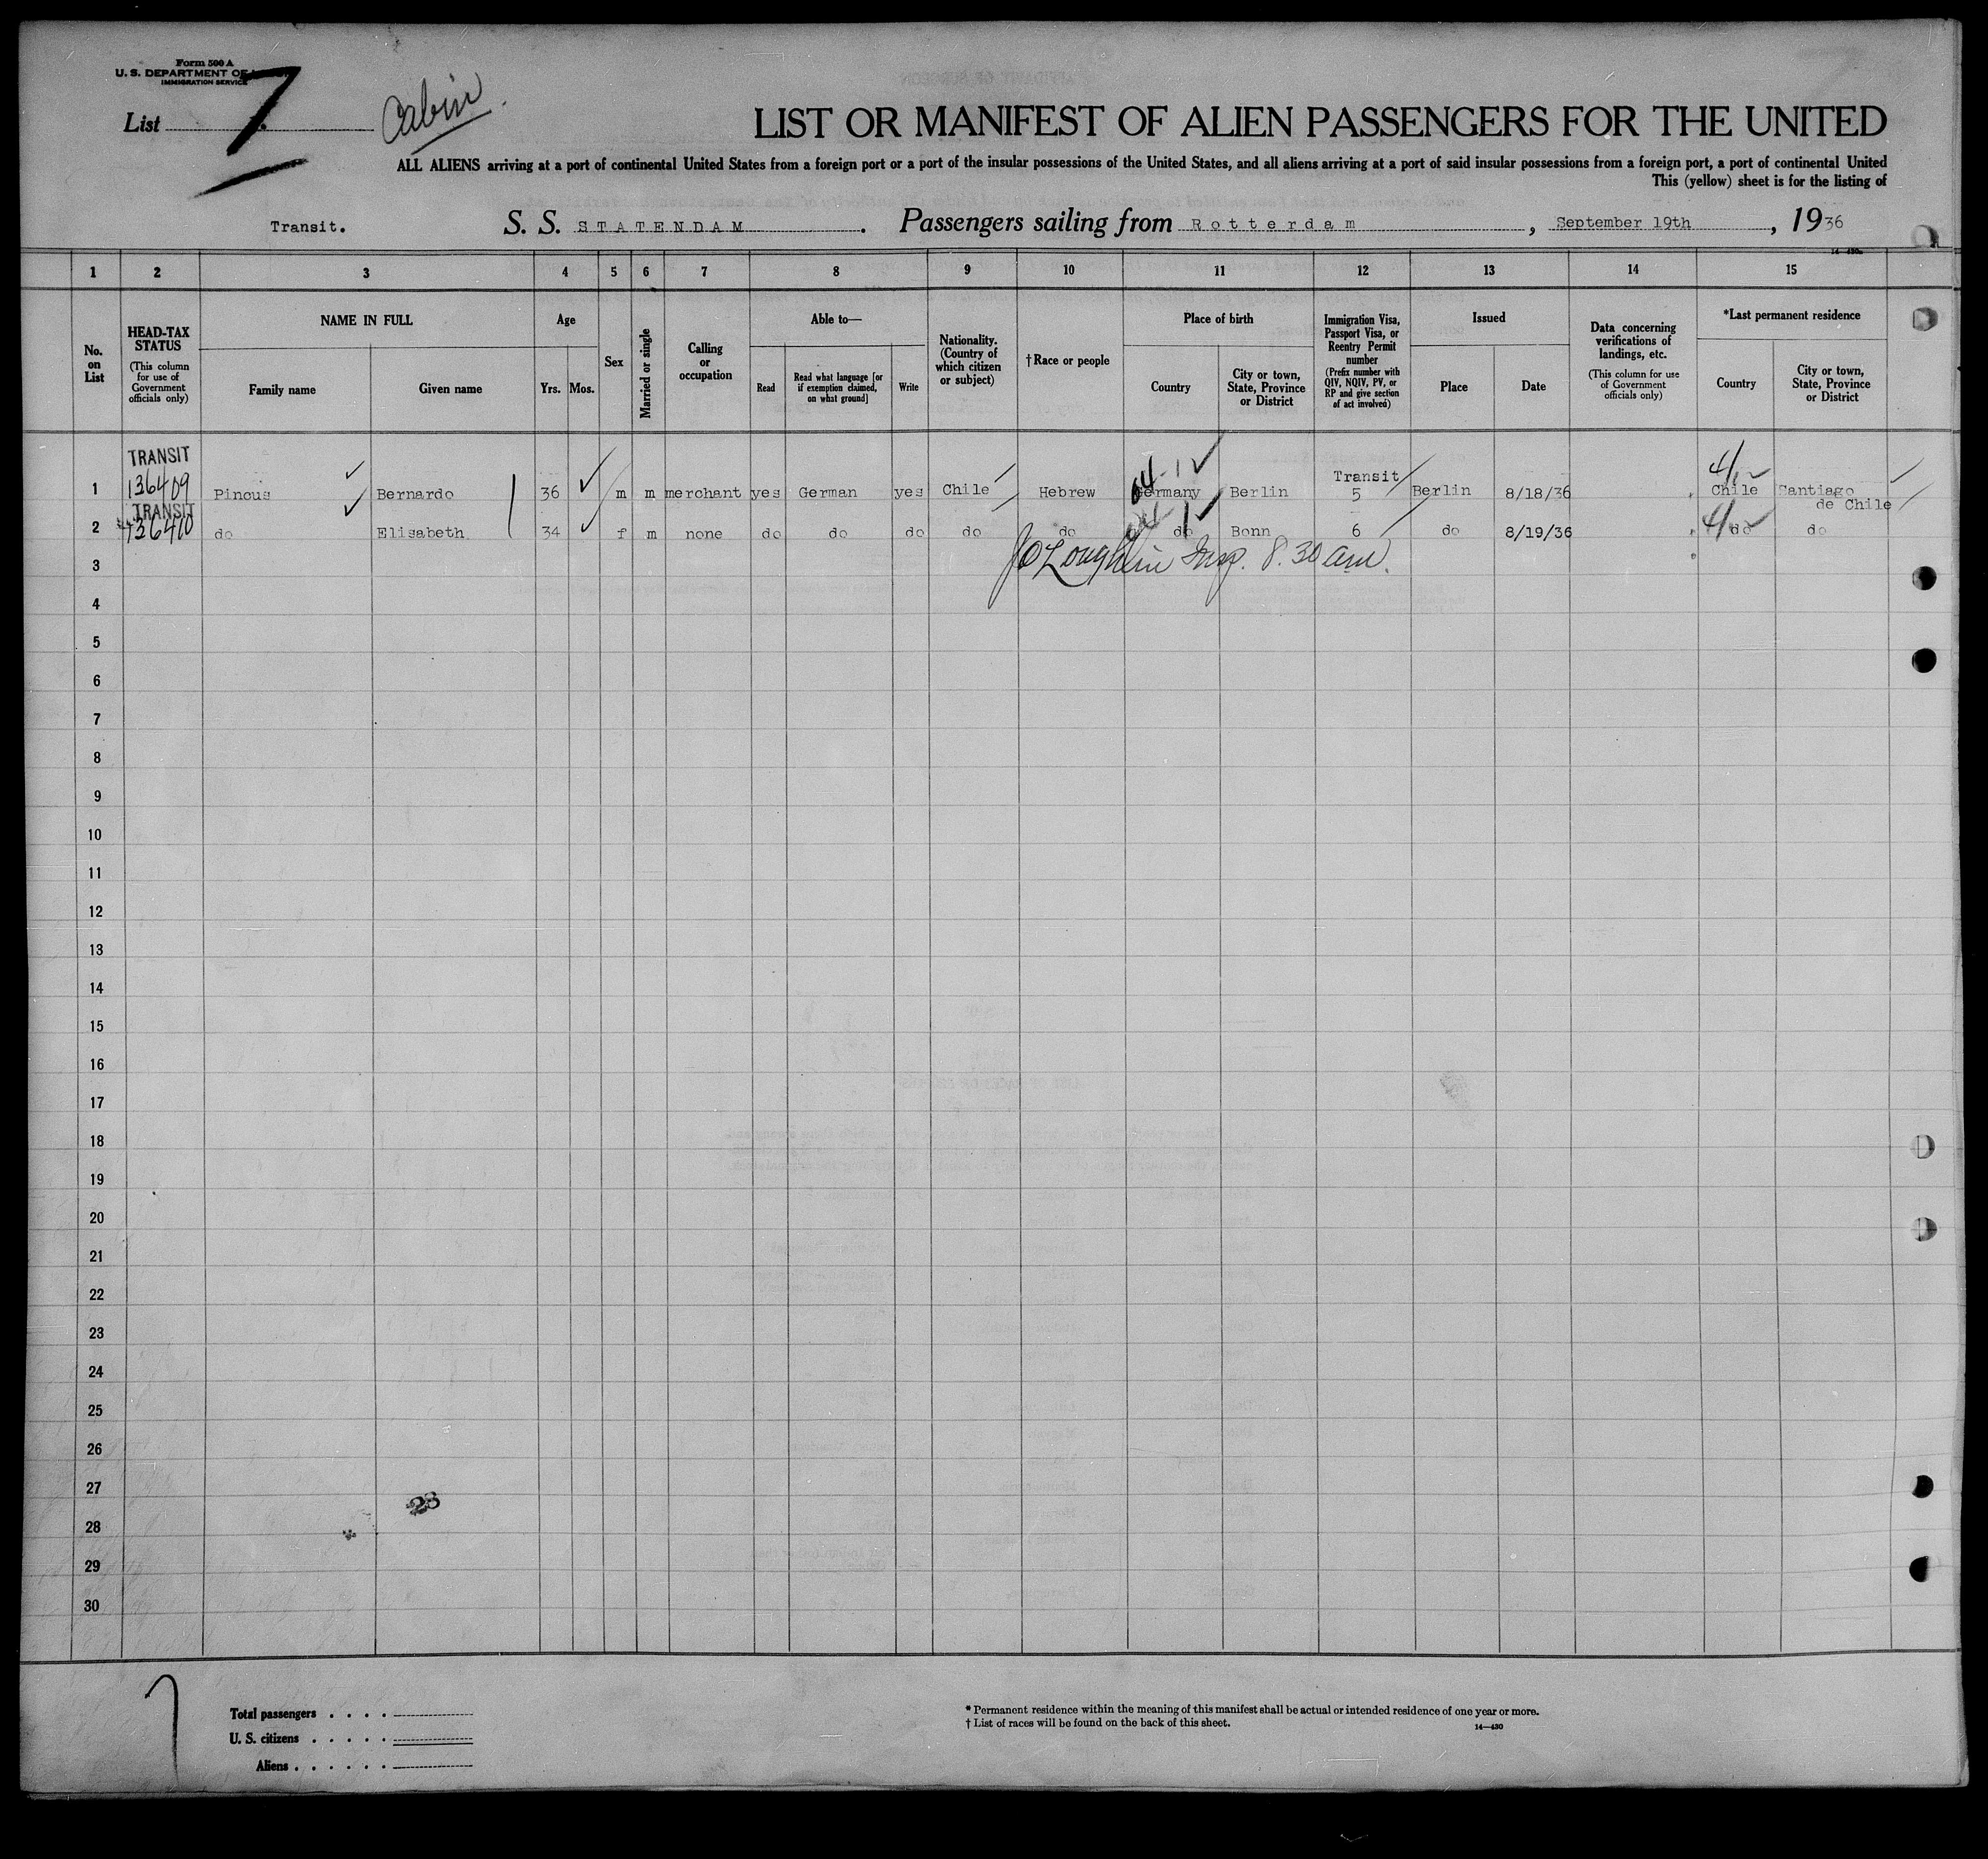 Form 500 A
U. S. DEPARTMENT OF
IMMIGRATION SERVICE
List 7
Cabin.
LIST OR MANIFEST OF ALIEN PASSENGERS FOR THE UNITED
ALL ALIENS arriving at a port of continental United States from a foreign port or a port of the insular possessions of the United States, and all aliens arriving at a port of said insular possessions from a foreign port, a port of continental United
This (yellow) sheet is for the listing of
Transit. S. S. STATENDAM. Passengers sailing from Rotterdam, September 19th, 1936
14—430a
1 2 3 4 5 6 7 8 9 10 11 12 13 14 15
No. on List
HEAD-TAX STATUS (This column for use of Government officials only)
NAME IN FULL
Family name
Given name
Age
Yrs. Mos.
Sex
Married or single
Calling or occupation
Able to—
Read
Read what language [or if exemption claimed, on what ground]
Write
Nationality. (Country of which citizen or subject)
†Race or people
Place of birth
Country
City or town, State, Province or District
Immigration Visa, Passport Visa, or Reentry Permit number (Prefix number with QIV, NQIV, PV, or RP and give section of act involved)
Issued
Place
Date
Data concerning verifications of landings, etc. (This column for use of Government officials only)
*Last permanent residence
Country
City or town, State, Province or District
TRANSIT
1 136409 Pincus Bernardo 36 m m merchant yes German yes Chile Hebrew Germany Berlin Transit 5 Berlin 8/18/36 Chile Santiago de Chile
TRANSIT
2 136410 do Elisabeth 34 f m none do do do do do do Bonn 6 do 8/19/36 do do
3 JO'Loughlin Insp. 8.30 am.
4
5
6
7
8
9
10
11
12
13
14
15
16
17
18
19
20
21
22
23
24
25
26
27
28
28
29
30
Total passengers . . . .
U. S. citizens . . . . .
Aliens . . . . . .
* Permanent residence within the meaning of this manifest shall be actual or intended residence of one year or more.
† List of races will be found on the back of this sheet.
14—430